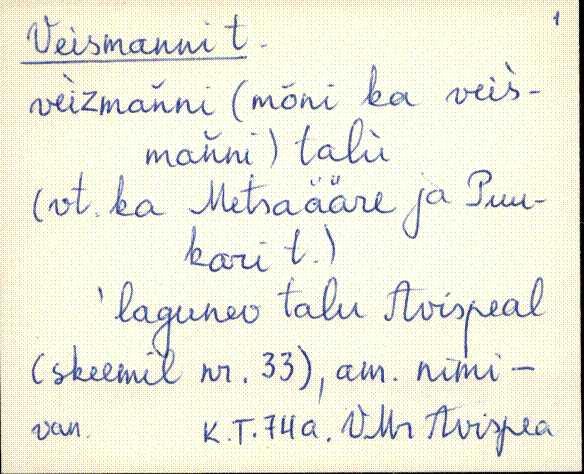 1
Veismanni t.
vèizmaňni (mõni ka veìs-
maňni) talù
(vt. ka Metsaääre ja Puu-
kari t.)
'lagunev talu Avispeal
(skeemil nr. 33), am. nimi –
van. K.T. 74a. VMr Avispea